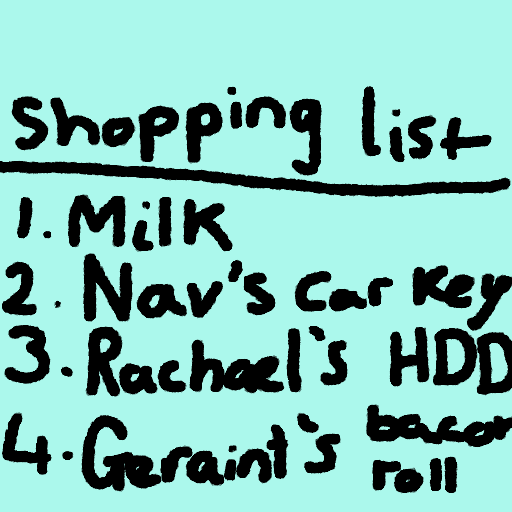 Shopping list
1. Milk
2. Nav's car key
3. Rachael's HDD
4. Geraint's bacon roll